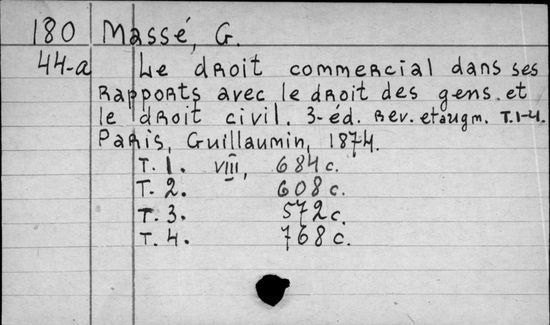 180 Massé, G.
44-a Le droit commercial dans ses
rapports avec le droit des gens et
le droit civil. 3-éd. Rev. et augm. T.1-4.
Paris, Guillaumin, 1874.
T. 1. VIII, 684 c.
T. 2. 608 c.
T. 3. 572 c.
T. 4. 768 c.